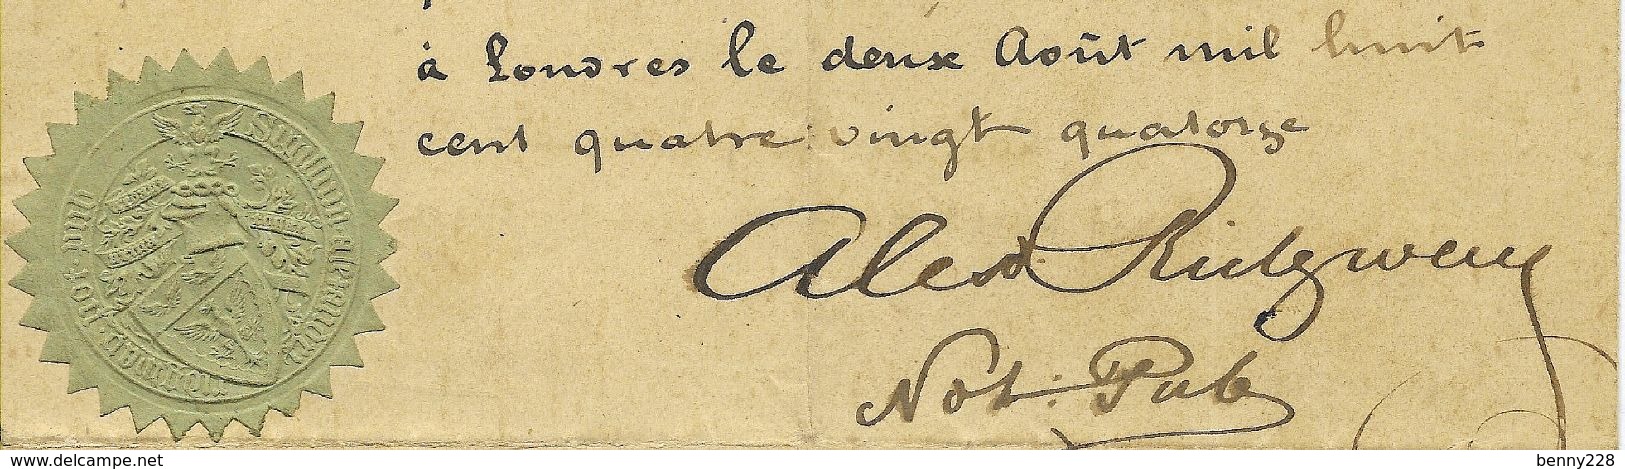 à Londres le deux Août mil huit
cent quatre vingt quatorze
Alexr. Ridgway
Not: Pub
www.delcampe.net
benny228